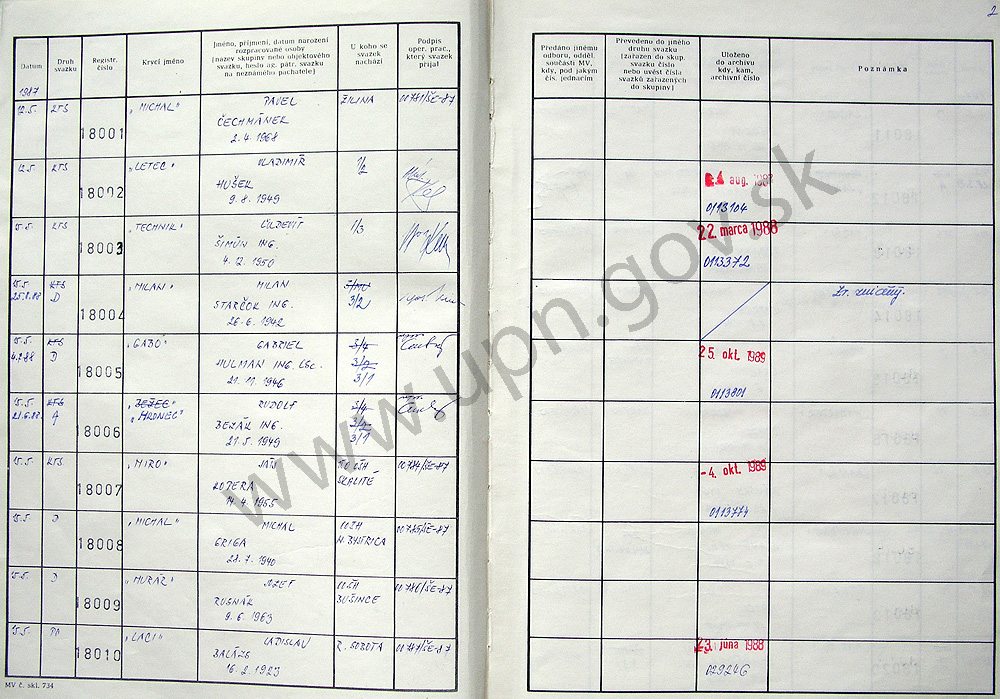 2
Datum
Druh svazku
Registr. číslo
Krycí jméno
Jméno, příjmení, datum narození rozpracované osoby (název skupiny nebo objektového svazku, heslo ag. pátr. svazku na neznámého pachatele)
U koho se svazek nachází
Podpis oper. prac., který svazek přijal
Předáno jinému odboru, odděl. součásti MV, kdy, pod jakým čís. jednacím
Převedeno do jiného druhu svazku (zařazen do skup. svazku číslo nebo uvést čísla svazků zařazených do skupiny)
Uloženo do archivu kdy, kam, archivní číslo
Poznámka
1987
12.5. KTS 18001 „MICHAL" PAVEL ŽILINA 00781/ŠE-87
ČECHMÁNEK
2. 4. 1968
12.5. KTS 18002 „LETEC" VLADIMÍR 1/2
HUŠEK
9. 8. 1949
aug. 198
0113104
15.5. KTS 18003 „TECHNIK" ĽUDEVÍT 1/3
ŠIMÚN ING.
4. 12. 1950
22. marca 1988
0113372
15.5. KTS 18004 „MILAN" MILAN
25.1.88 D STARČOK ING. 3/2
26. 6. 1942
Zv. zničený.
15.5. KTS 18005 „GABO" GABRIEL 3/4
4.2.88 D HULMAN ING. CSc. 3/2
21. 11. 1946 3/1
25. okt. 1989
0113801
15.5. KTS 18006 „BEŽEC" RUDOLF 3/4
21.6.88 A „HRONEC" BEZÁK ING. 3/2
21. 5. 1949 3/1
15.5. KTS 18007 „MIRO" JÁN OO PZ SKALITÉ 00784/ŠE-87
KOTERA
14. 4. 1955
-4. okt. 1989
0113774
15.5. D 18008 „MICHAL" MICHAL N. BYSTRICA 00785/ŠE-87
GRIGA
28. 7. 1940
15.5. D 18009 „MURÁR" JOZEF BUŠINCE 00786/ŠE-87
RUSNÁK
9. 6. 1963
15.5. 18010 „LACI" LADISLAV R. SOBOTA 00787/ŠE-87
BALÁZS
16. 2. 1923
23. júna 1988
029246
MV č. skl. 734
www.upn.gov.sk